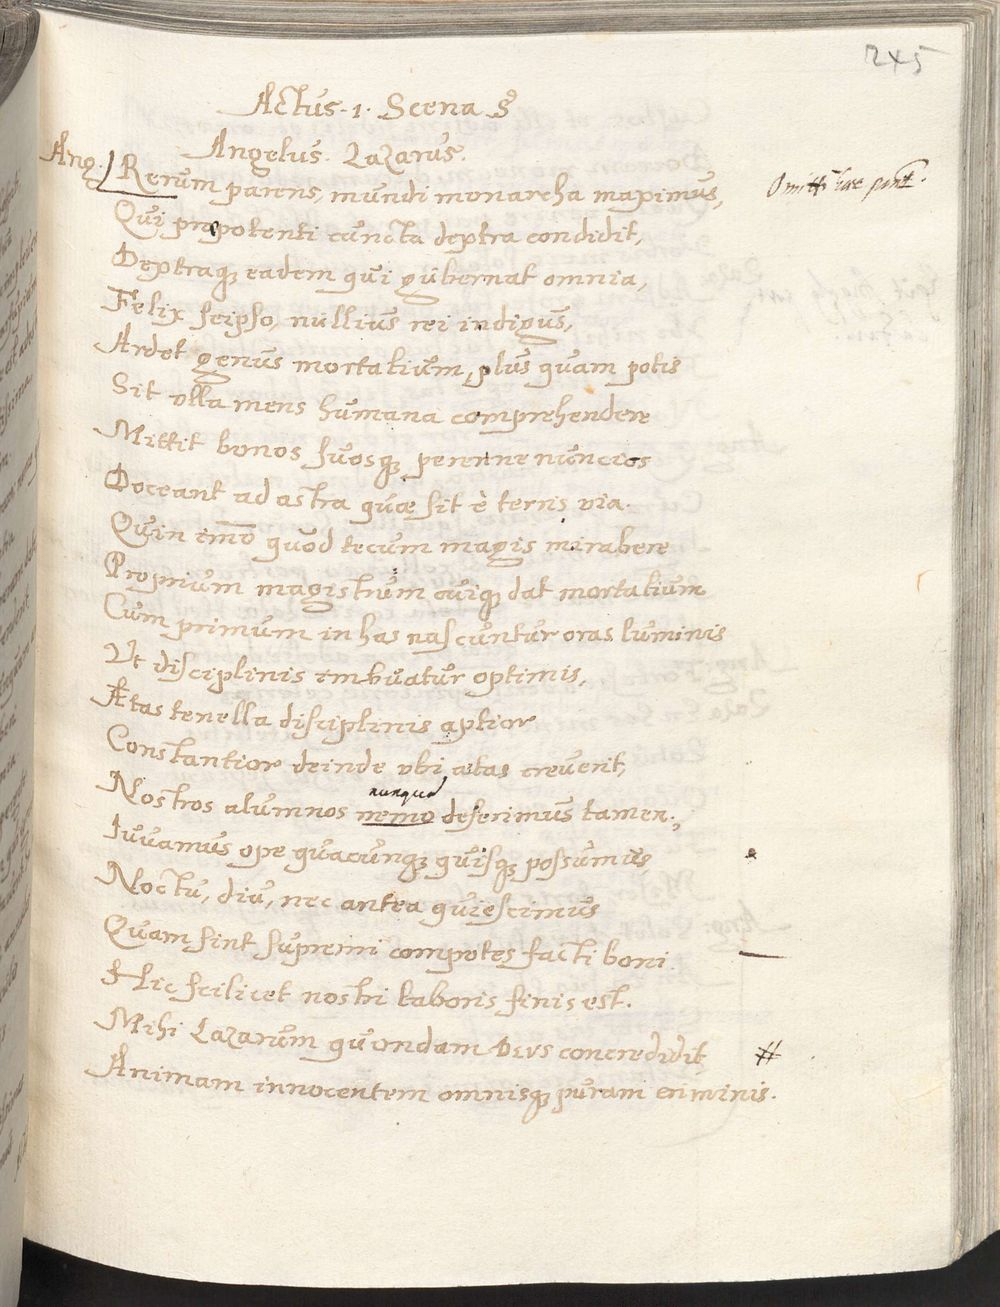 245
Actus. 1. Scena 8
Angelus. Lazarus.
Ang. Rerum parens, mundi monarcha maximus,
Omitti hae possent.
Qui prępotenti cuncta dextra condidit,
Dextraq; eadem qui gubernat omnia,
Felix seipso, nullius rei indigus,
Ardet genus mortalium, plus quam potis
Sit ulla mens humana comprehendere
Mittit bonos suosq; perenne nuncios
Doceant ad astra quæ sit è terris via.
Quin imō quod tecum magis mirabere
Proprium magistrum cuiq; dat mortalium
Cum primum in has nascuntur oras luminis
Ut disciplinis imbuatur optimis,
Ætas tenella disciplinis aptior
Constantior deinde ubi ætas creverit,
nunquā
Nostros alumnos nemo deserimus tamen;
Iuvamus ope quacunq; quisq; possumus
Noctu, diu, nec antea quiescimus
Quam sint supremi compotes facti boni.
Hic scilicet nostri laboris finis est.
Mihi Lazarum quondam Deus concredidit #
Animam innocentem omnisq; puram criminis.